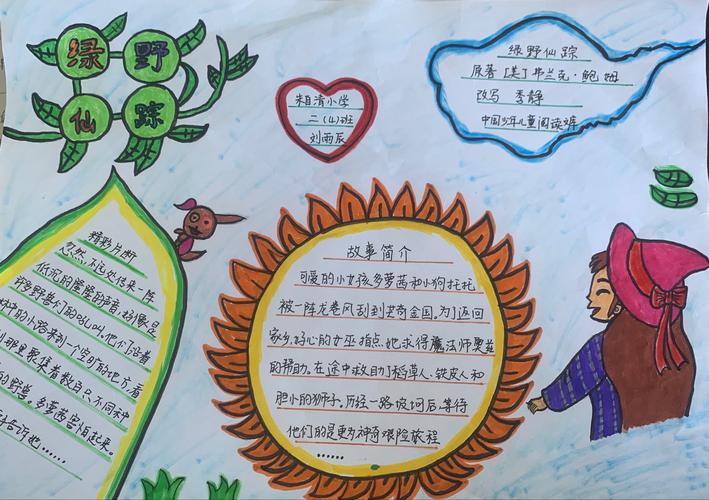 绿野
仙踪
朱自清小学
二(4)班
刘雨辰
绿野仙踪
原著[美]弗兰克·鲍姆
改写 季静
中国少年儿童阅读文库
精彩片断
忽然,不远处传来一阵
低沉的
的声音,
林中的小路来到一个空旷的地方,看
那里聚集着数百只不同种
的野兽,多萝茜害怕起来。
告诉她
故事简介
可爱的小女孩多萝茜和小狗托托,
被一阵龙卷风刮到芒奇金国,为了返回
家乡,好心的女巫指点她求得魔法师奥兹
的帮助。在途中救助了稻草人、铁皮人和
胆小的狮子,历经一路坡坷后等待
他们的是更为神奇艰险旅程
......